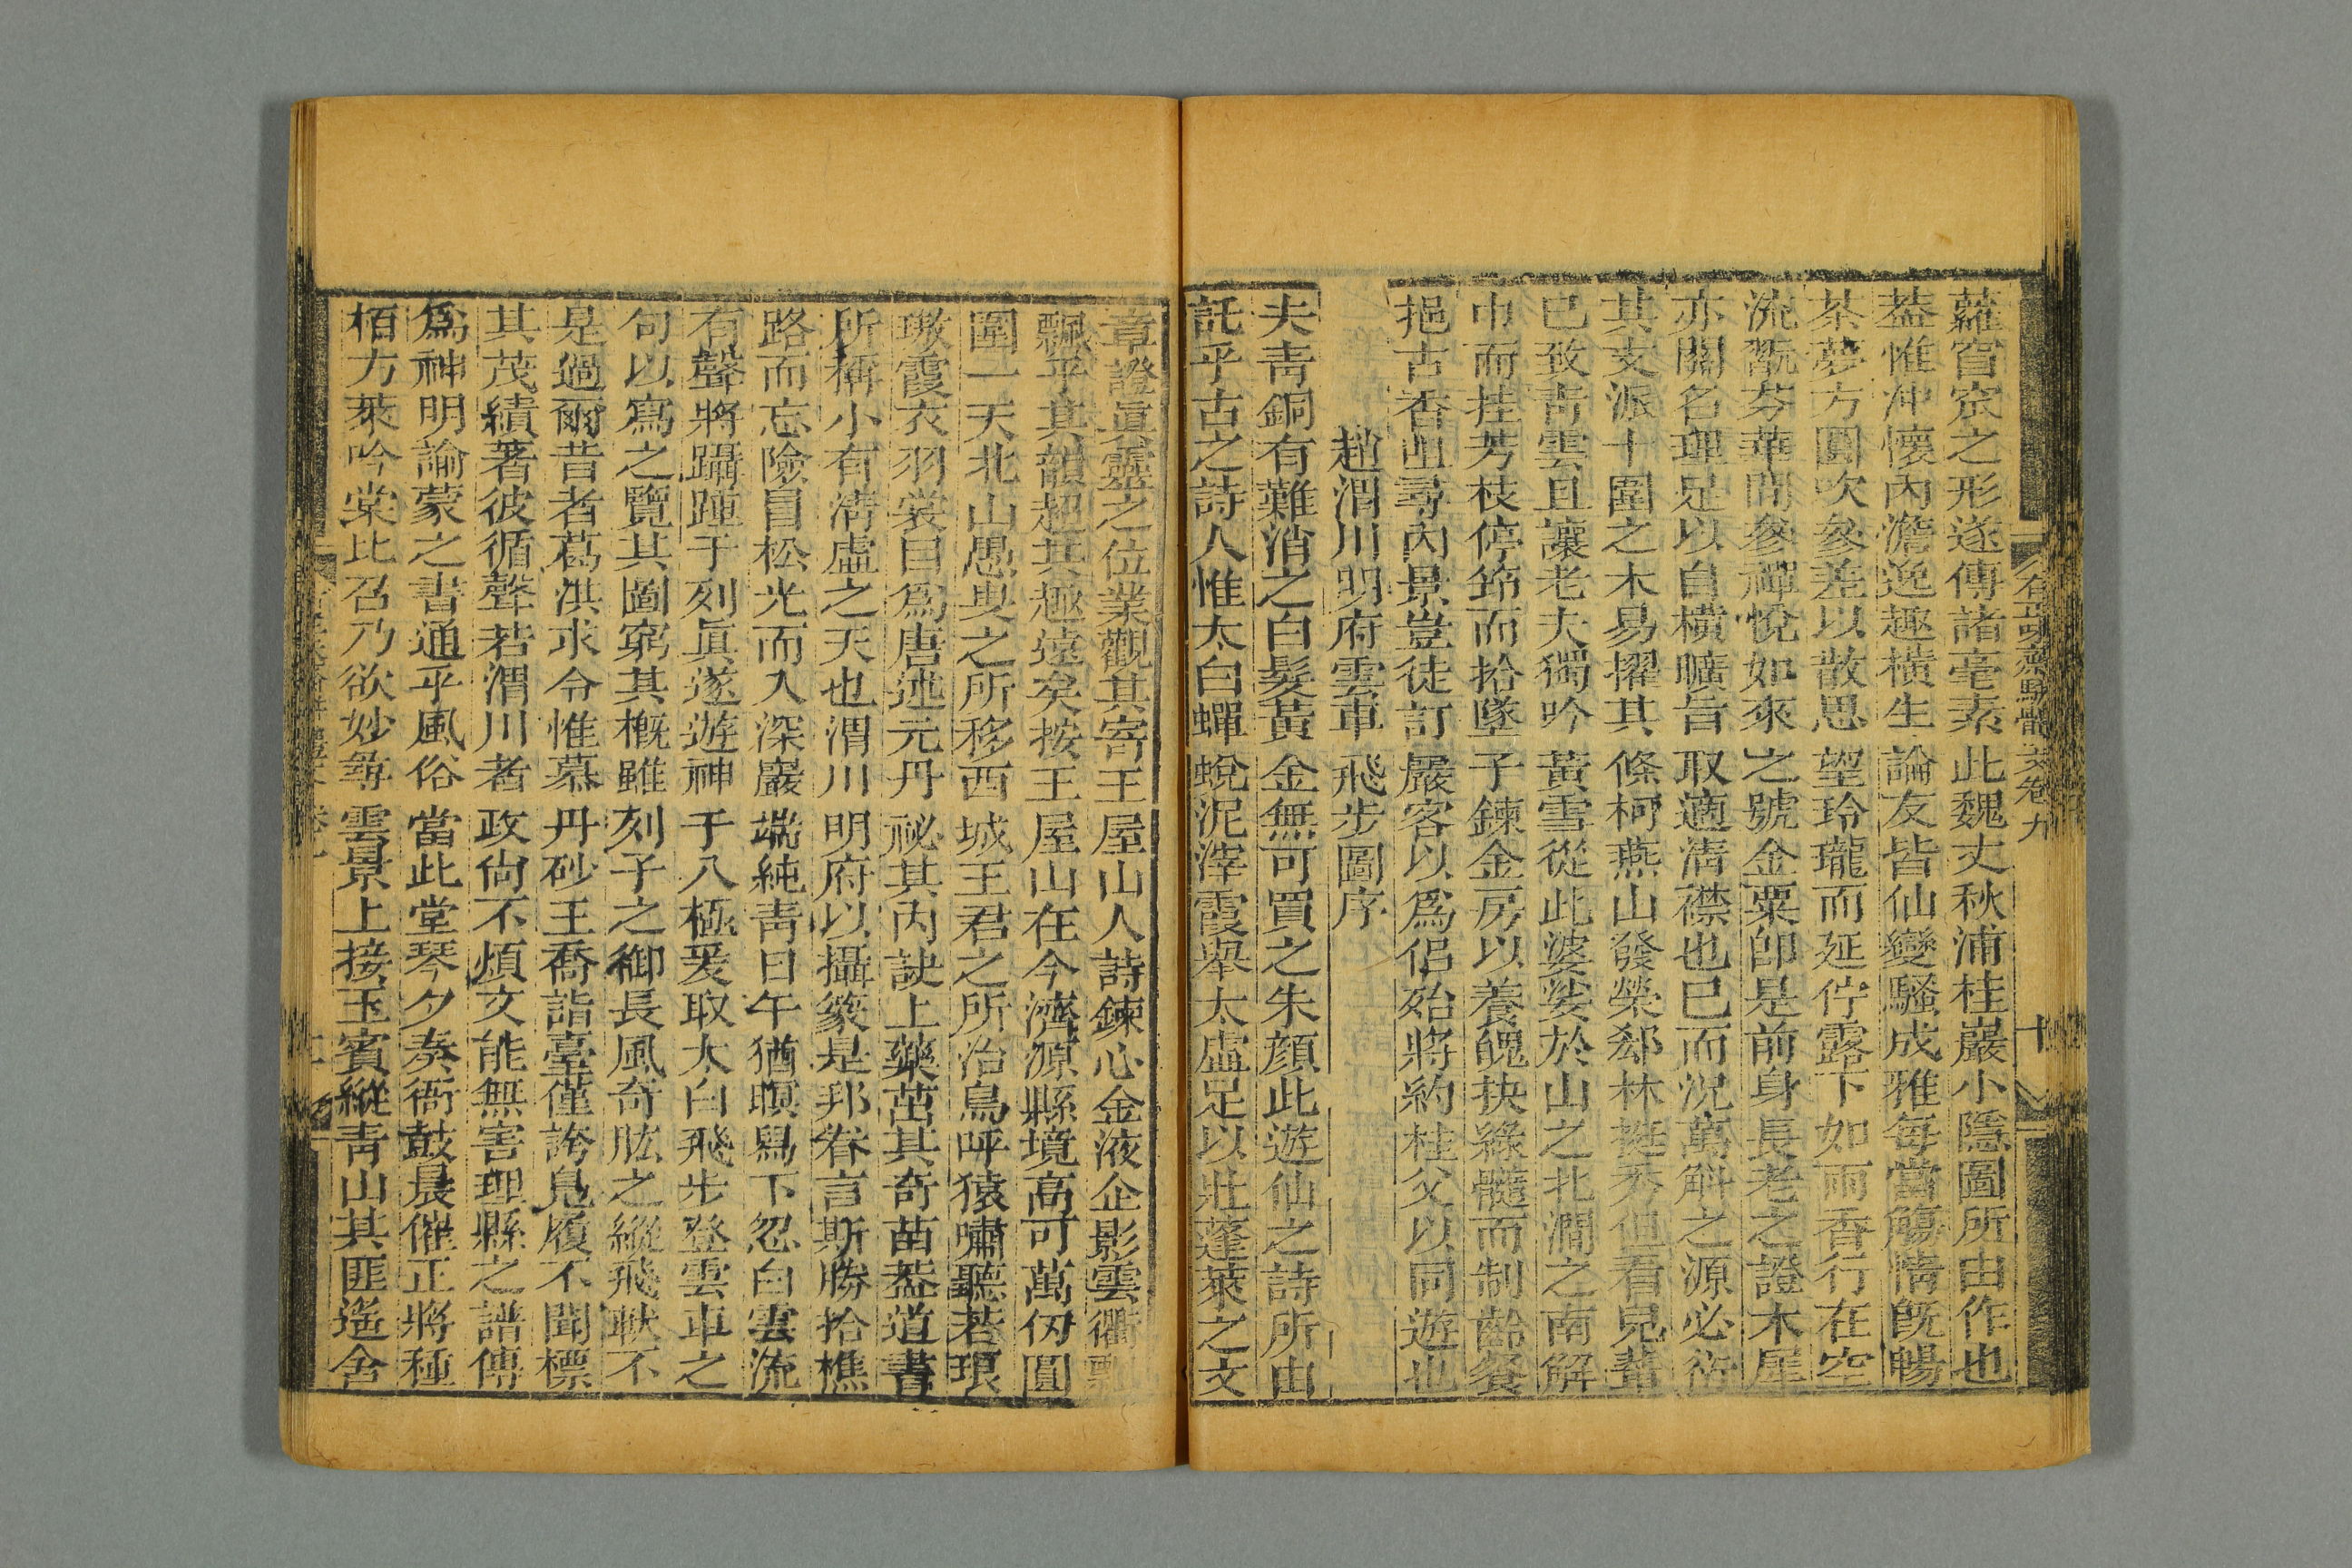 蘿窅窱之形遂傳諸毫素此魏丈秋浦桂巖小隱圖所由作也
蓋惟沖懷內澹逸趣橫生論友皆仙變騷成雅每當觴情旣暢
茶夢方圓吹參差以散思望玲瓏而延佇露下如雨香行在空
流翫芬華間參禪悅如來之號金粟卽是前身長老之證木犀
亦關名理足以自橫曠旨取適清襟也已而況萬斛之源必衍
其支派十圍之木易擢其條柯燕山發榮郄林挺秀但看兒輩
已致靑雲且讓老夫獨吟黃雪從此婆娑於山之北澗之南解
巾而挂芳枝停筇而拾墜子鍊金房以養魄抉綠髓而制齡餐
挹古香幽尋內景豈徒訂嚴客以爲侶殆將約桂父以同遊也
趙渭川明府雲車飛步圖序
夫靑銅有難消之白髮黃金無可買之朱顏此遊仙之詩所由
託乎古之詩人惟太白蟬蛻泥滓霞舉太虛足以壯蓬萊之文
章證眞靈之位業觀其寄王屋山人詩鍊心金液企影雲衢飄
飄乎其韻超其趣遠矣按王屋山在今濟源縣境高可萬仞圓
圍一天北山愚叟之所移西城王君之所治鳥呼猿嘯聽若琅
璈霞衣羽裳目爲唐述元丹祕其內訣上藥茁其奇苗葢道書
所稱小有淸虛之天也渭川明府以攝篆是邦眷言斯勝拾樵
路而忘險冒松光而入深巖端純靑日午猶暝舄下忽白雲流
有聲將躡踵于列眞遂遊神于八極爰取太白飛步登雲車之
句以寫之覽其圖窮其槪雖列子之御長風奇肱之縱飛軑不
是過爾昔者葛洪求令惟慕丹砂王喬詣臺僅誇鳧履不聞標
其茂績著彼循聲若渭川者政尙不煩文能無害理縣之譜傳
爲神明論蒙之書通乎風俗當此堂琴夕奏衙鼓晨催正將種
栢方萊吟棠比召乃欲妙尋雲景上接玉賓縱靑山其匪遙舍
有正味齋駢體文卷九
十